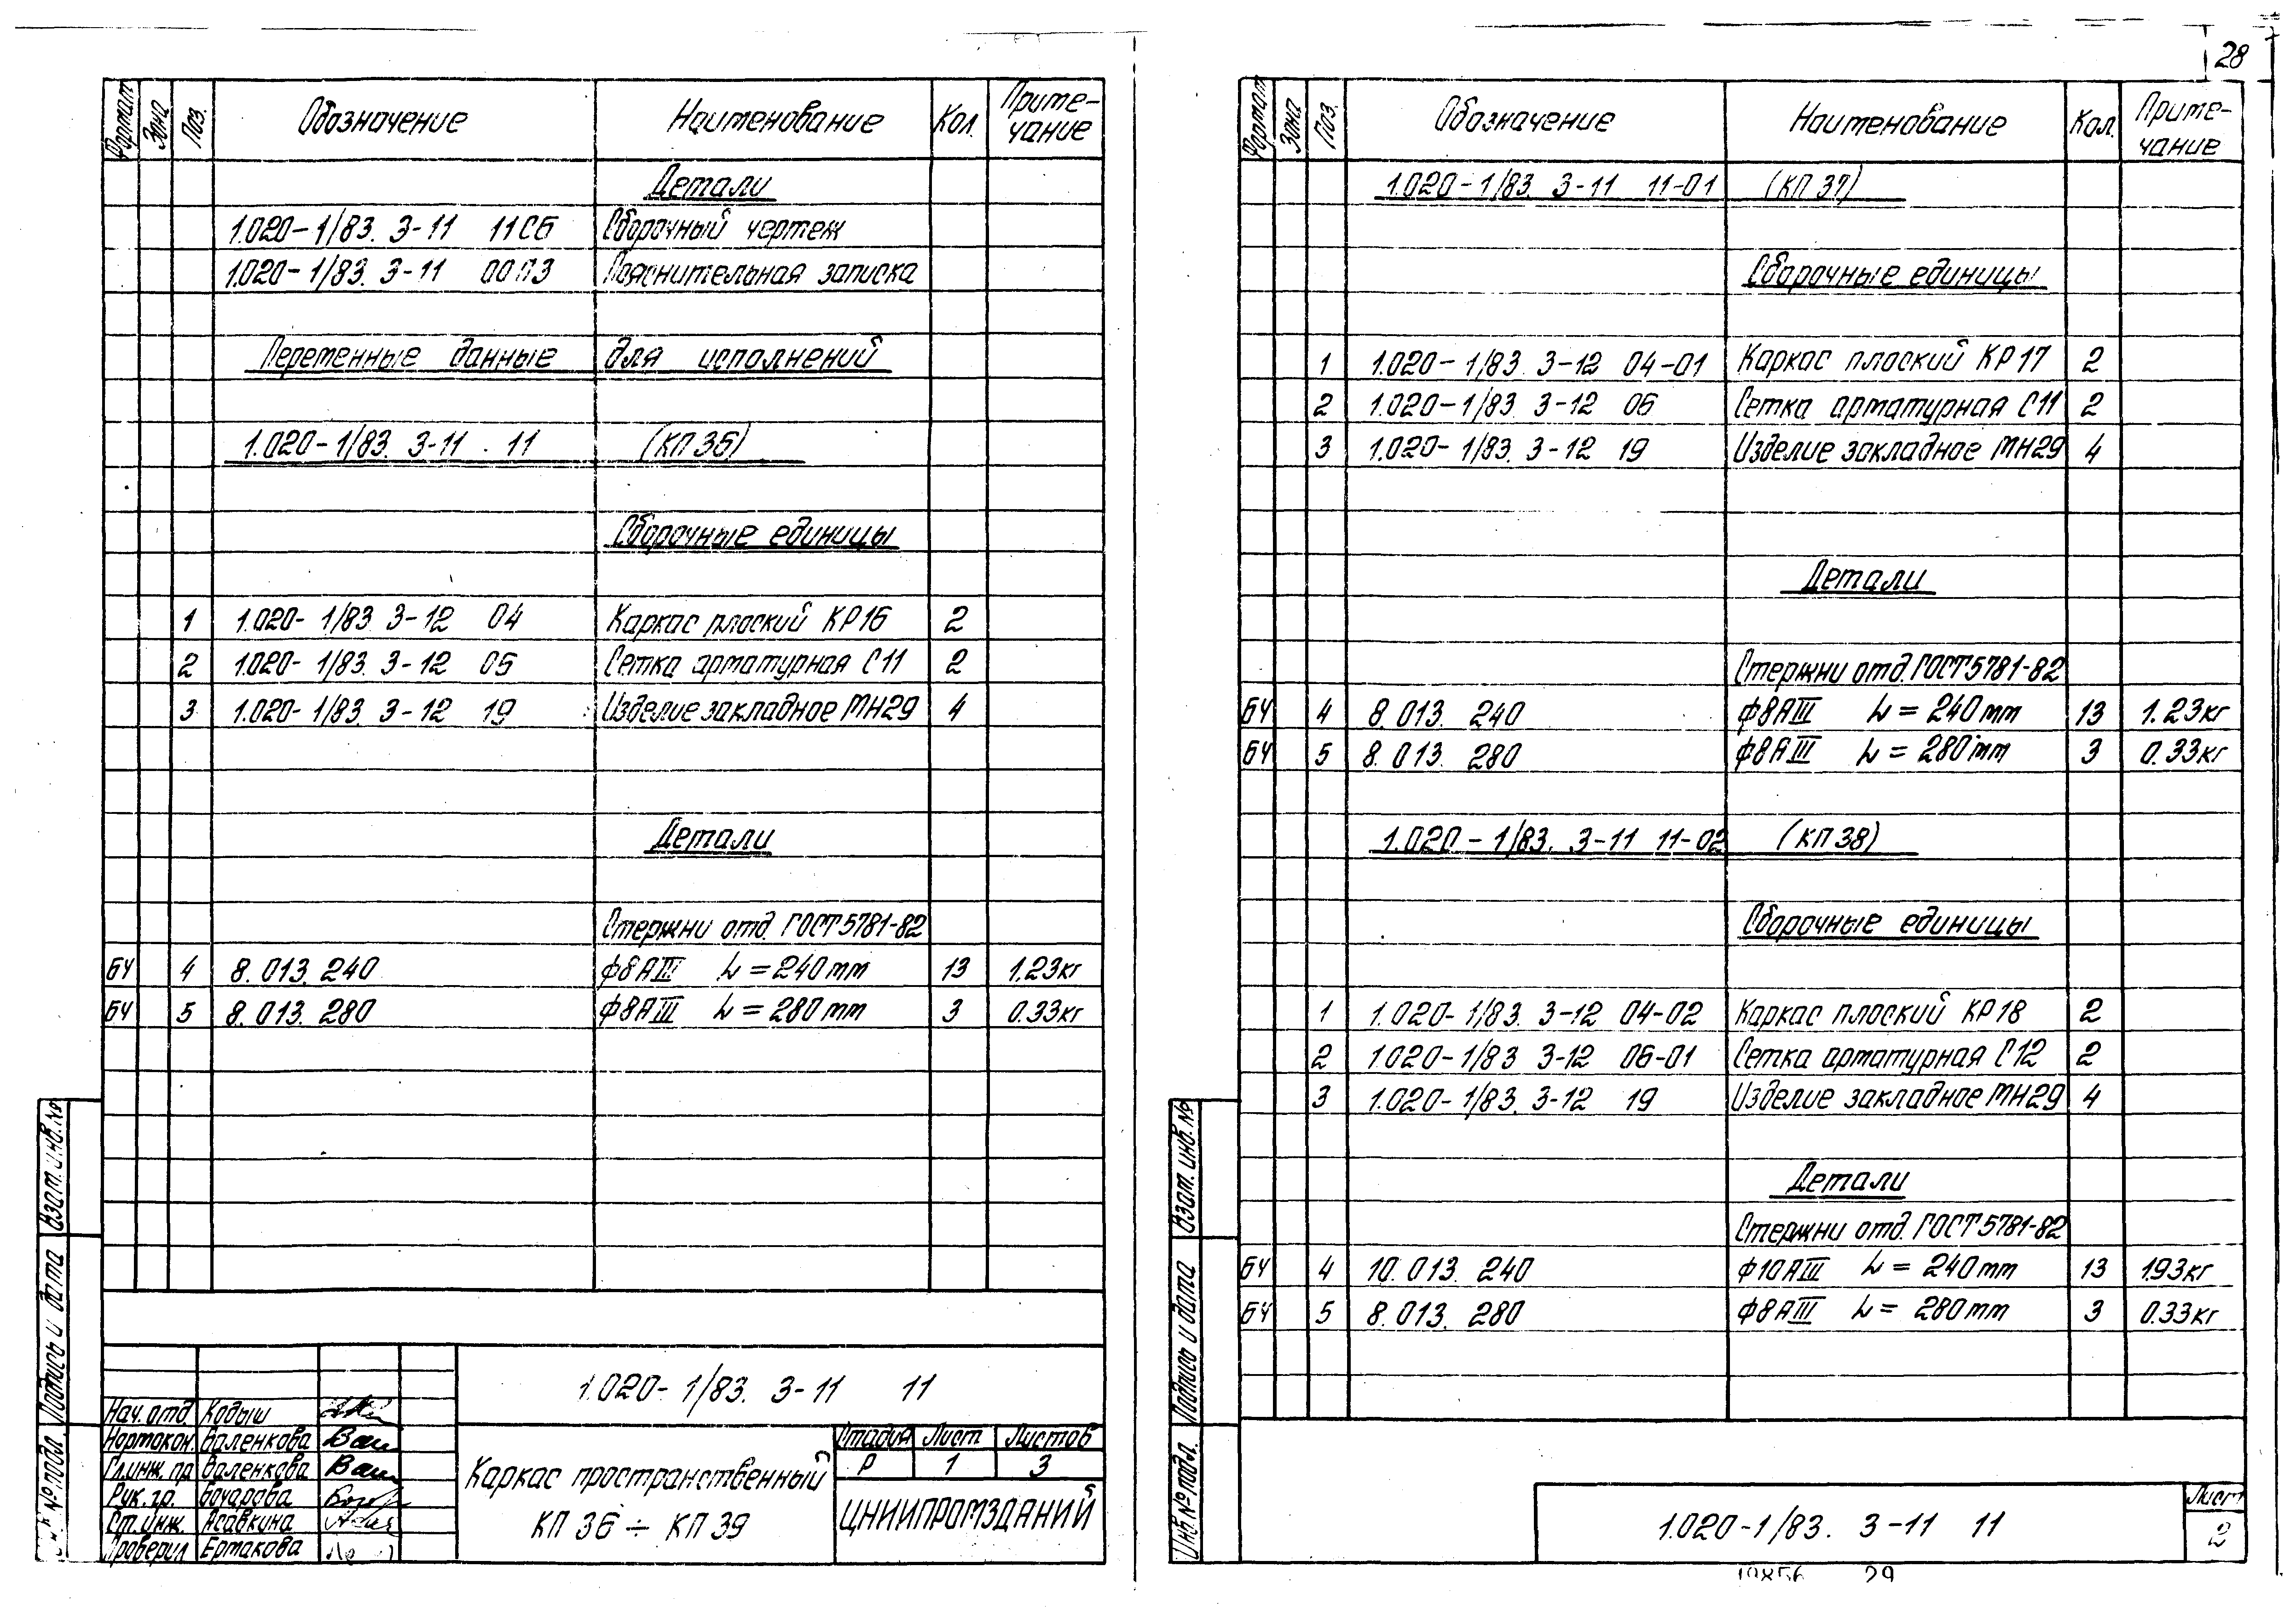 28
Формат Зона Поз. Обозначение Наименование Кол. Приме-
чание
Детали
1.020-1/83. 3-11 11СБ Сборочный чертеж
1.020-1/83. 3-11 00ПЗ Пояснительная записка
Переменные данные для исполнений
1.020-1/83. 3-11 11 (КП 36)
Сборочные единицы
1 1.020-1/83 3-12 04 Каркас плоский КР16 2
2 1.020-1/83 3-12 06 Сетка арматурная С11 2
3 1.020-1/83 3-12 19 Изделие закладное МН29 4
Детали
Стержни отд. ГОСТ 5781-82
БЧ 4 8.013.240 ф8АIII L=240мм 13 1.23кг
БЧ 5 8.013.280 ф8АIII L=280мм 3 0.33кг
1.020-1/83. 3-11 11
Нач.отд. Кодыш
Нормокон. Валенкова
Гл.инж.пр. Валенкова
Рук.гр. Бочарова
Ст.инж. Асавкина
Проверил Ермакова
Каркас пространственный
КП 36 ÷ КП 39
Стадия Лист Листов
Р 1 3
ЦНИИПРОМЗДАНИЙ
Взам.инв.№
Подпись и дата
№ подл.
Формат Зона Поз. Обозначение Наименование Кол. Приме-
чание
1.020-1/83. 3-11 11-01 (КП 37)
Сборочные единицы
1 1.020-1/83 3-12 04-01 Каркас плоский КР17 2
2 1.020-1/83 3-12 06 Сетка арматурная С11 2
3 1.020-1/83. 3-12 19 Изделие закладное МН29 4
Детали
Стержни отд. ГОСТ 5781-82
БЧ 4 8.013.240 ф8АIII L=240мм 13 1.23кг
БЧ 5 8.013.280 ф8АIII L=280мм 3 0.33кг
1.020-1/83. 3-11 11-02 (КП 38)
Сборочные единицы
1 1.020-1/83. 3-12 04-02 Каркас плоский КР18 2
2 1.020-1/83 3-12 06-01 Сетка арматурная С12 2
3 1.020-1/83. 3-12 19 Изделие закладное МН29 4
Детали
Стержни отд. ГОСТ 5781-82
БЧ 4 10.013.240 ф10АIII L=240мм 13 1.93кг
БЧ 5 8.013.280 ф8АIII L=280мм 3 0.33кг
Взам.инв.№
Подпись и дата
Инв.№ подл.
1.020-1/83. 3-11 11
Лист
2
29